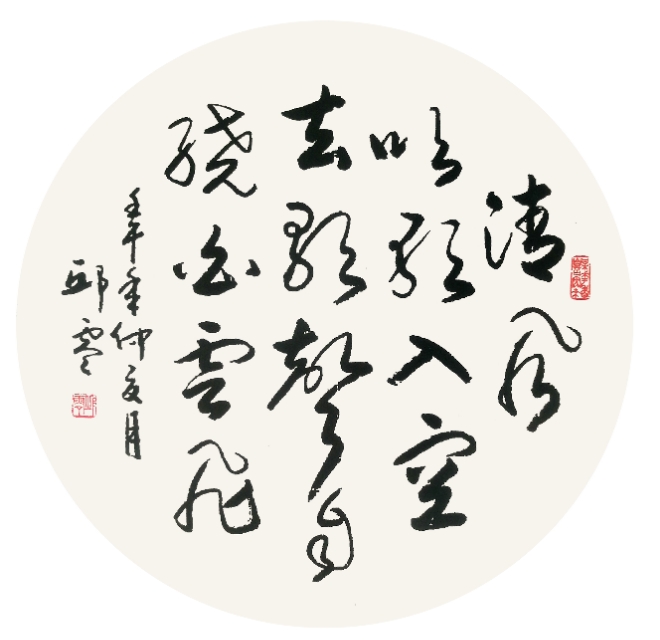 清風
吹歌入空
去歌聲自
繞白雲飛
壬午年仲夏月
邱零